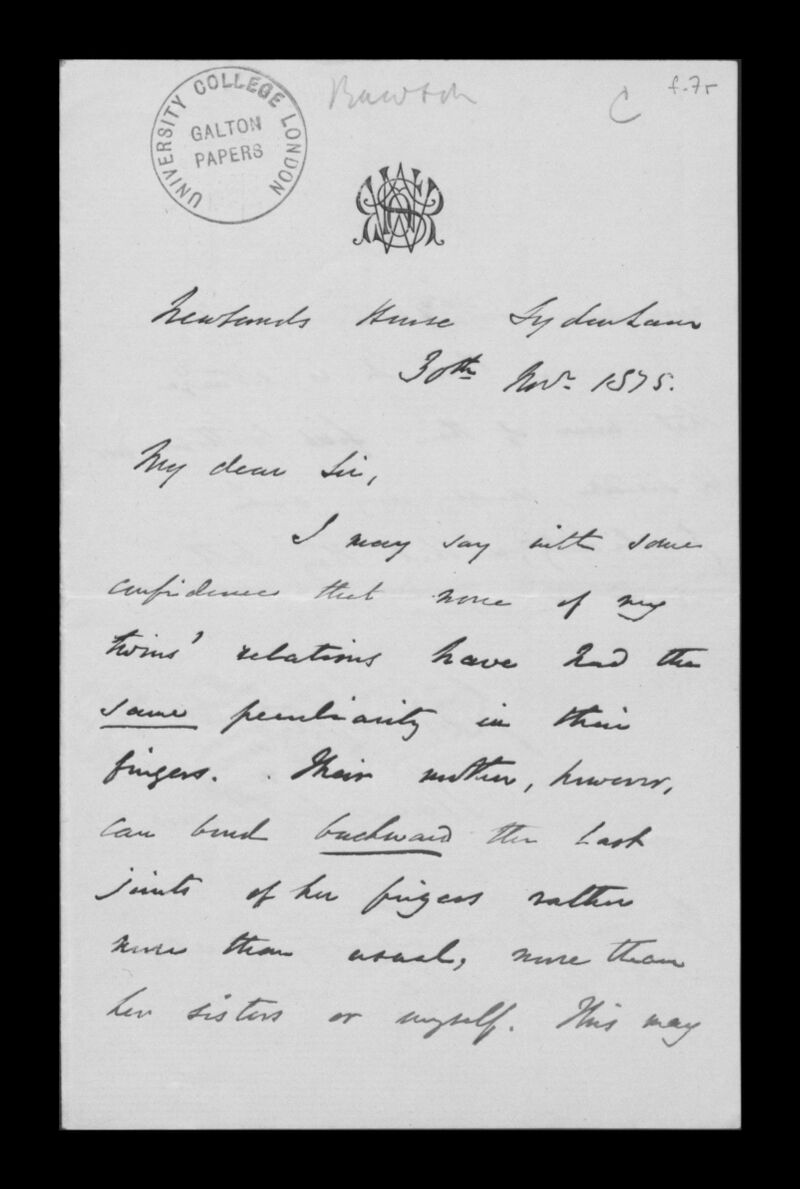 UNIVERSITY COLLEGE LONDON
GALTON
PAPERS
C
f.7r
Newlands House Sydenham
30th Novr. 1875.
My dear Sir,
I may say with some
confidence that none of my
twins' relations have had the
same peculiarity in their
fingers. Their mother, however,
can bend backward the last
joints of her fingers rather
more than usual, more than
her sisters or myself. This may